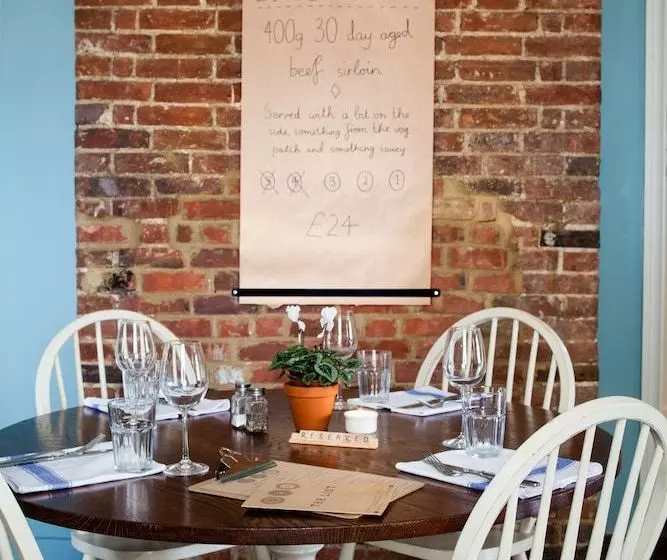 400g 30 day aged
beef sirloin
Served with a bit on the
side, something from the veg
patch and something saucy
5 4 3 2 1
£24
RESERVED
THE LIST